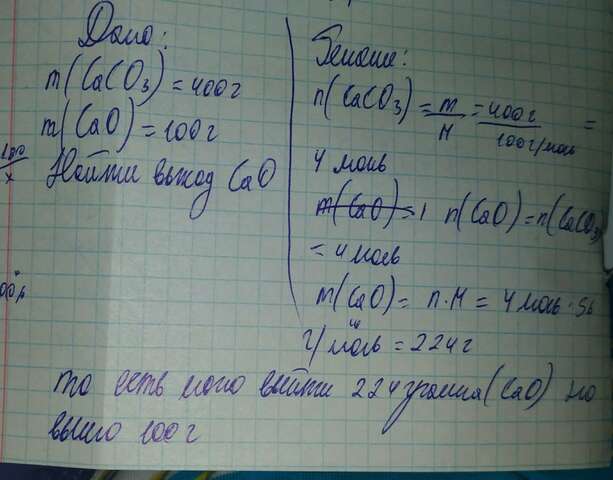 Дано:
m(CaCO3) = 400г
m(CaO) = 100г
Найти выход CaO
100/x
Решение:
n(CaCO3) = m/M = 400г/100г/моль =
4 моль
m(CaO) = 1 n(CaO) = n(CaCO3)
= 4 моль
m(CaO) = n·M = 4 моль · 56
г/моль = 224г
то есть могло выйти 224 грамма (CaO) но
вышло 100г